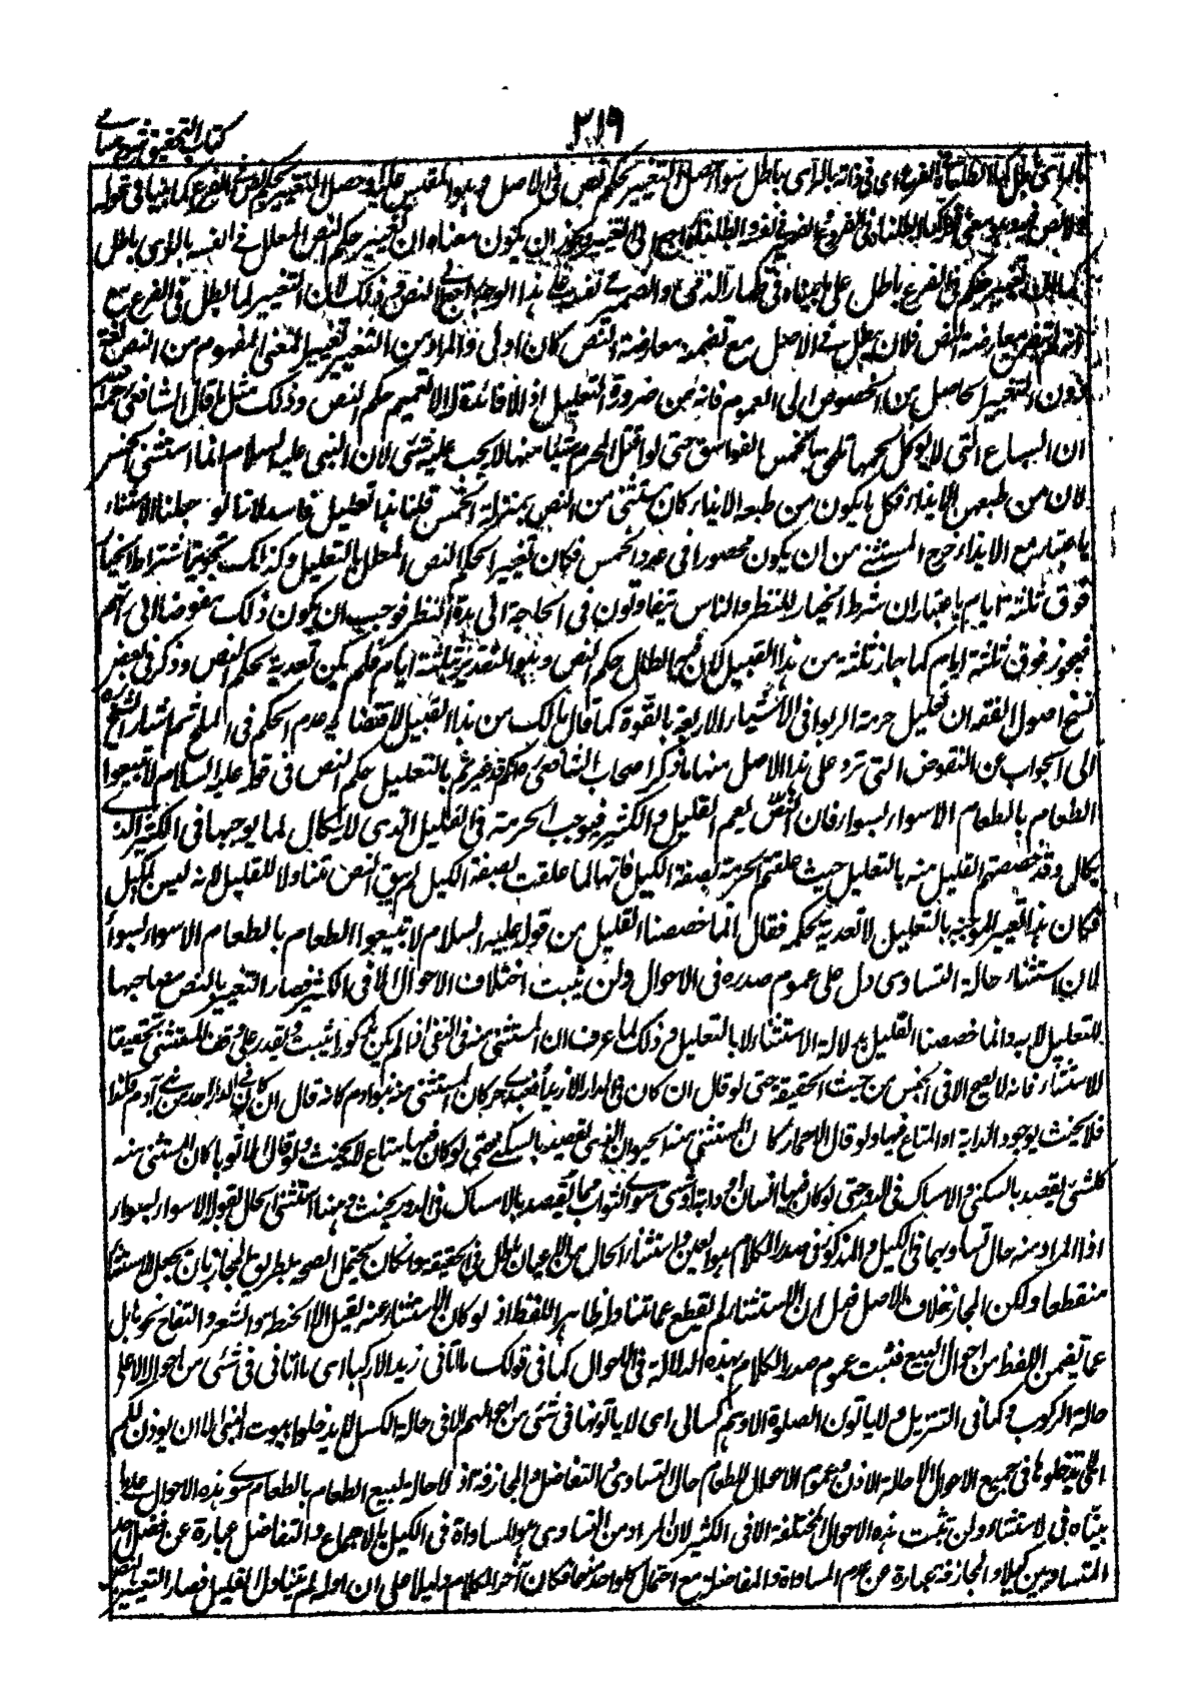 ٣١٩
كتاب التحقيق شرح حسامى
بالرأى باطل فى ذاته بالرأى باطل سواء حصل التغيير لحكم نص فى الاصل وهو المقيس عليه او حصل التغيير لحكم نص فى الفرع كما بينا فى قوله
فى التغيير ويجوز ان يكون معناه ان تغيير حكم النص المعلل فى نفسه بالرأى باطل
كما ان تغيير حكم فى الفرع باطل على ما بيناه فى ظهار الذمى وذلك لان التغيير لما بطل فى الفرع مع
معارضة النص فلان يبطل فى الاصل مع تضمنه معارضة النص كان اولى والمراد من التغيير تغيير المعنى المفهوم من النص لغة
دون التغيير الحاصل من الخصوص الى العموم فانه من ضرورة التعليل اذ لا فائدة له الا تعميم حكم النص وذلك مثل ما قال الشافعى رحمه الله
ان السباع التى لا يوكل لحمها ملحقة بالخمس الفواسق حتى لو قتل المحرم شيئا منها لا يجب عليه شئ لان النبى عليه السلام انما استثنى الخمس
لان من طبعهن الايذاء فكل ما يكون من طبعه الايذاء كان مستثنى من النص بمنزلة الخمس قلنا هذا تعليل فاسد لانا لو جعلنا الاستثناء
باعتبار مع الايذاء خرج المستثنى من ان يكون محصورا فى عدد الخمس فكان تغييرا لحكم النص المعلل بالتعليل وكذلك تجويز اشتراط الخيار
فوق ثلثة ايام باعتبار ان شرط الخيار للنظر والناس يتفاوتون فى الحاجة الى مدة النظر فوجب ان يكون ذلك مفوضا الى رأيهم
فيجوز فوق ثلثة ايام كما جاز ثلثة من هذا القبيل لان فيه ابطال حكم النص وهو التقدير بثلثة ايام فلم يكن تعدية لحكم النص وذكر فى بعض
نسخ اصول الفقه ان تعليل حرمة الربوا فى الاشياء الاربعة بالقوة كما قال مالك من هذا القبيل لاقتضائه عدم الحكم فى الملح ثم اشار الشيخ
الى الجواب عن النقوض التى ترد على هذا الاصل منها ما ذكر اصحاب الشافعى انكم قد غيرتم بالتعليل حكم النص فى قوله عليه السلام لا تبيعوا
الطعام بالطعام الا سواء بسواء فان النص يعم القليل والكثير فيوجب الحرمة فى القليل الذى لا يكال كما يوجبها فى الكثير الذى
يكال وقد خصصتم القليل منه بالتعليل حيث علقتم الحرمة بصفة الكيل فانها لما علقت بصفة الكيل لم يبق النص متناولا للقليل لانه ليس بمكيل
فكان هذا تغييرا لموجبه بالتعليل لا تعدية لحكمه فقال انما خصصنا القليل من قوله عليه السلام لا تبيعوا الطعام بالطعام الا سواء بسواء
لان استثناء حالة التساوى دل على عموم صدره فى الاحوال ولن يثبت اختلاف الاحوال الا فى الكثير فصار التغيير بالنص مصاحبا
للتعليل لا به وانما خصصنا القليل بدلالة الاستثناء لا بالتعليل وذلك لما عرف ان المستثنى منه فى النفى اذا لم يكن مذكورا يثبت ويقدر على وفق المستثنى تحقيقا
للاستثناء فانه لا يصح الا فى الجنس من حيث الحقيقة حتى لو قال ان كان فى الدار الا زيد فعبده حر كان المستثنى منه بنوا دم كانه قال ان كان فى الدار احد من بنى آدم هكذا
فلا يحنث بوجود الدابة او المتاع فيها ولو قال الا حمار كان المستثنى منه الحيوان الذى يقصد بالسكنى حتى لو كان فيها متاع لا يحنث ولو قال الا ثوبا كان المستثنى منه
كل شئ يقصد بالسكنى والامساك فى الدور حتى لو كان فيها انسان او دابة او شئ سوى الثواب مما يقصد بالامساك فى الدور يحنث وهنا استثنى الحال بقوله الا سواء بسواء
اذ المراد منه حال تساويهما فى الكيل والمذكور فى صدر الكلام هو العين واستثناء الحال من الاعيان باطل فى الحقيقة وان كان يحتمل الصحة بطريق المجاز بان يجعل الاستثناء
منقطعا ولكن المجاز خلاف الاصل
عما تضمن اللفظ من احوال البيع فثبت عموم صدر الكلام بهذه الدلالة فى الاحوال كما فى قولك ما اتانى زيد الا راكبا اى ما اتانى فى شئ من احواله الا على
حالة الركوب وكما فى التنزيل ولا ياتون الصلوة الا وهم كسالى اى لا ياتونها فى شئ من احوالهم الا فى حالة الكسل لا تدخلوا بيوت النبى الا ان يوذن لكم
اى لا تدخلوها فى جميع الاحوال الا حالة الاذن وعموم الاحوال للطعام حال التساوى والتفاضل والمجازفة اذ لا حال لبيع الطعام بالطعام سوى هذه الاحوال على ما
بيناه فى الاستثناء ولن تثبت هذه الاحوال المختلفة الا فى الكثير لان المراد من التساوى هو المساواة فى الكيل بالاجماع والتفاضل عبارة عن فضل احد
المتساويين كيلا والمجازفة عبارة عن عدم المساواة والمفاضلة مع احتمال كل واحد منهما فكان آخر الكلام دليلا على ان اوله لم يتناول القليل فصار التغيير